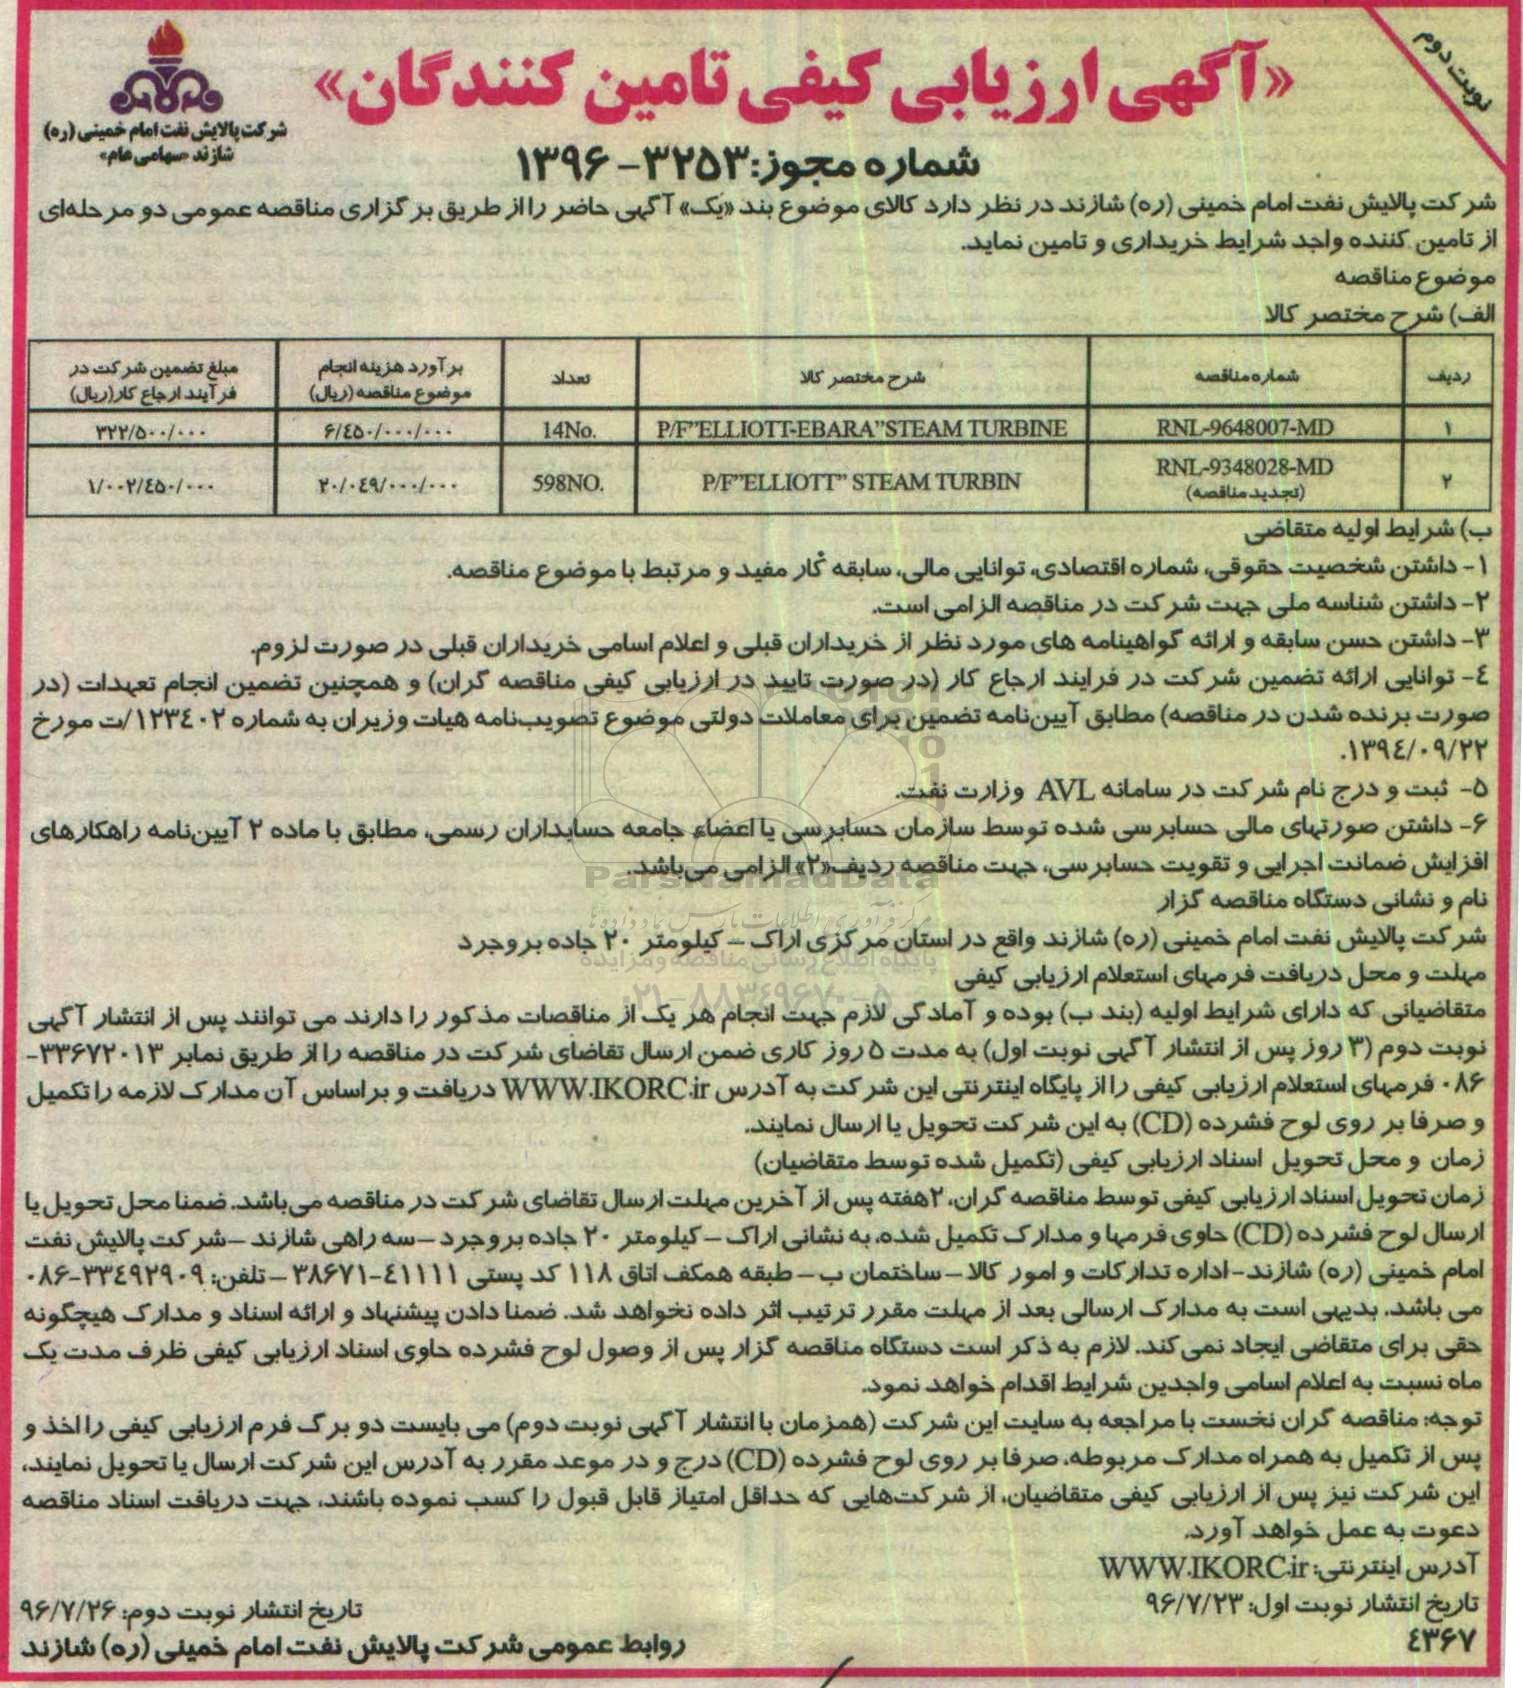 نوبت دوم
«آگهی ارزیابی کیفی تامین کنندگان»
شرکت پالایش نفت امام خمینی (ره)
شازند «سهامی عام»
شماره مجوز: ۳۲۵۳ - ۱۳۹۶
شرکت پالایش نفت امام خمینی (ره) شازند در نظر دارد کالای موضوع بند «یک» آگهی حاضر را از طریق برگزاری مناقصه عمومی دو مرحله‌ای
از تامین کننده واجد شرایط خریداری و تامین نماید.
موضوع مناقصه
الف) شرح مختصر کالا
ردیف | شماره مناقصه | شرح مختصر کالا | تعداد | برآورد هزینه انجام موضوع مناقصه (ریال) | مبلغ تضمین شرکت در فرآیند ارجاع کار (ریال)
۱ | RNL-9648007-MD | P/F"ELLIOTT-EBARA"STEAM TURBINE | 14No. | ۶/۴۵۰/۰۰۰/۰۰۰ | ۳۲۲/۵۰۰/۰۰۰
۲ | RNL-9348028-MD (تجدید مناقصه) | P/F"ELLIOTT" STEAM TURBIN | 598NO. | ۲۰/۰۴۹/۰۰۰/۰۰۰ | ۱/۰۰۲/۴۵۰/۰۰۰
ب) شرایط اولیه متقاضی
۱- داشتن شخصیت حقوقی، شماره اقتصادی، توانایی مالی، سابقه کار مفید و مرتبط با موضوع مناقصه.
۲- داشتن شناسه ملی جهت شرکت در مناقصه الزامی است.
۳- داشتن حسن سابقه و ارائه گواهینامه های مورد نظر از خریداران قبلی و اعلام اسامی خریداران قبلی در صورت لزوم.
۴- توانایی ارائه تضمین شرکت در فرایند ارجاع کار (در صورت تایید در ارزیابی کیفی مناقصه گران) و همچنین تضمین انجام تعهدات (در
صورت برنده شدن در مناقصه) مطابق آیین‌نامه تضمین برای معاملات دولتی موضوع تصویب‌نامه هیات وزیران به شماره ۱۲۳۴۰۲/ت مورخ
۱۳۹۴/۰۹/۲۲.
۵- ثبت و درج نام شرکت در سامانه AVL وزارت نفت.
۶- داشتن صورتهای مالی حسابرسی شده توسط سازمان حسابرسی یا اعضاء جامعه حسابداران رسمی، مطابق با ماده ۲ آیین‌نامه راهکارهای
افزایش ضمانت اجرایی و تقویت حسابرسی، جهت مناقصه ردیف«۲» الزامی می‌باشد.
ParsNamadData
نام و نشانی دستگاه مناقصه گزار
شرکت پالایش نفت امام خمینی (ره) شازند واقع در استان مرکزی اراک - کیلومتر ۲۰ جاده بروجرد
پایگاه اطلاع رسانی مناقصه و مزایده
مهلت و محل دریافت فرمهای استعلام ارزیابی کیفی
۰۲۱-۸۸۳۴۹۶۷۰-۵
متقاضیانی که دارای شرایط اولیه (بند ب) بوده و آمادگی لازم جهت انجام هر یک از مناقصات مذکور را دارند می توانند پس از انتشار آگهی
نوبت دوم (۳ روز پس از انتشار آگهی نوبت اول) به مدت ۵ روز کاری ضمن ارسال تقاضای شرکت در مناقصه را از طریق نمابر ۳۳۶۷۲۰۱۳-
۰۸۶ فرمهای استعلام ارزیابی کیفی را از پایگاه اینترنتی این شرکت به آدرس WWW.IKORC.ir دریافت و براساس آن مدارک لازمه را تکمیل
و صرفا بر روی لوح فشرده (CD) به این شرکت تحویل یا ارسال نمایند.
زمان و محل تحویل اسناد ارزیابی کیفی (تکمیل شده توسط متقاضیان)
زمان تحویل اسناد ارزیابی کیفی توسط مناقصه گران، ۲هفته پس از آخرین مهلت ارسال تقاضای شرکت در مناقصه می‌باشد. ضمنا محل تحویل یا
ارسال لوح فشرده (CD) حاوی فرمها و مدارک تکمیل شده، به نشانی اراک - کیلومتر ۲۰ جاده بروجرد - سه راهی شازند - شرکت پالایش نفت
امام خمینی (ره) شازند - اداره تدارکات و امور کالا - ساختمان ب - طبقه همکف اتاق ۱۱۸ کد پستی ۴۱۱۱۱-۳۸۶۷۱ - تلفن: ۳۳۴۹۲۹۰۹-۰۸۶
می باشد. بدیهی است به مدارک ارسالی بعد از مهلت مقرر ترتیب اثر داده نخواهد شد. ضمنا دادن پیشنهاد و ارائه اسناد و مدارک هیچگونه
حقی برای متقاضی ایجاد نمی‌کند. لازم به ذکر است دستگاه مناقصه گزار پس از وصول لوح فشرده حاوی اسناد ارزیابی کیفی ظرف مدت یک
ماه نسبت به اعلام اسامی واجدین شرایط اقدام خواهد نمود.
توجه: مناقصه گران نخست با مراجعه به سایت این شرکت (همزمان با انتشار آگهی نوبت دوم) می بایست دو برگ فرم ارزیابی کیفی را اخذ و
پس از تکمیل به همراه مدارک مربوطه، صرفا بر روی لوح فشرده (CD) درج و در موعد مقرر به آدرس این شرکت ارسال یا تحویل نمایند.
این شرکت نیز پس از ارزیابی کیفی متقاضیان، از شرکت‌هایی که حداقل امتیاز قابل قبول را کسب نموده باشند، جهت دریافت اسناد مناقصه
دعوت به عمل خواهد آورد.
آدرس اینترنتی: WWW.IKORC.ir
تاریخ انتشار نوبت اول: ۹۶/۷/۲۳
تاریخ انتشار نوبت دوم: ۹۶/۷/۲۶
۴۳۶۷
روابط عمومی شرکت پالایش نفت امام خمینی (ره) شازند